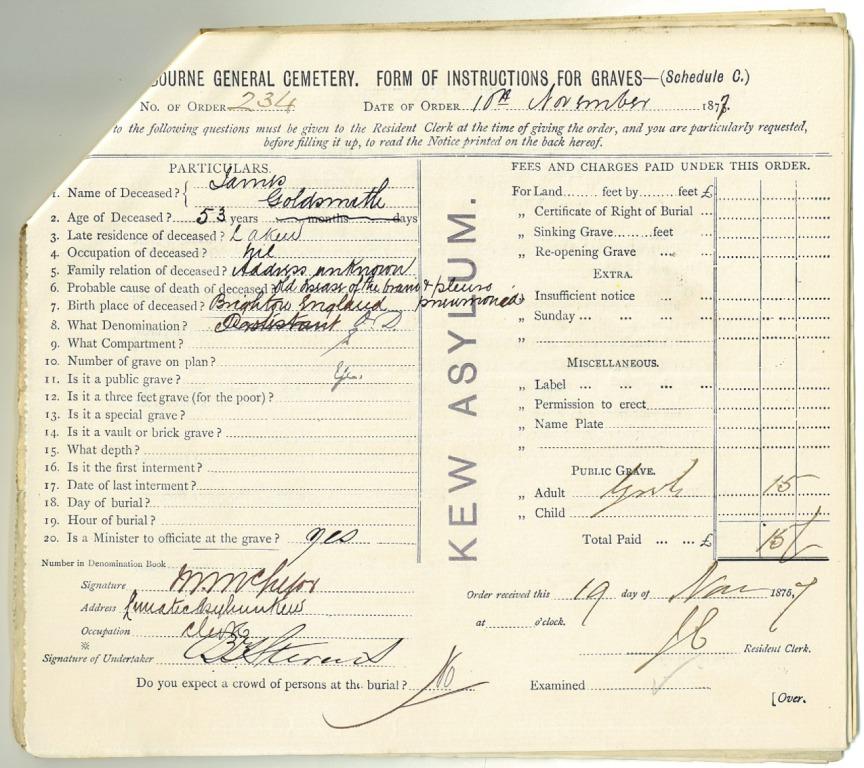 BOURNE GENERAL CEMETERY. FORM OF INSTRUCTIONS FOR GRAVES—(Schedule C.)
No. of Order 234 Date of Order 10th November 1877.
to the following questions must be given to the Resident Clerk at the time of giving the order, and you are particularly requested,
before filling it up, to read the Notice printed on the back hereof.
PARTICULARS.
1. Name of Deceased? { James
Goldsmith
2. Age of Deceased? 53 years months days
3. Late residence of deceased?
4. Occupation of deceased? Nil
5. Family relation of deceased? Address unknown
6. Probable cause of death of deceased? Old disease of the brain & pleuro
pneumonia
7. Birth place of deceased? Brighton England
8. What Denomination?
9. What Compartment?
10. Number of grave on plan?
11. Is it a public grave? Yes.
12. Is it a three feet grave (for the poor)?
13. Is it a special grave?
14. Is it a vault or brick grave?
15. What depth?
16. Is it the first interment?
17. Date of last interment?
18. Day of burial?
19. Hour of burial?
20. Is a Minister to officiate at the grave? yes
Number in Denomination Book
Signature
Address Lunatic Asylum Kew
Occupation Clerk
※
Signature of Undertaker
Do you expect a crowd of persons at the burial? No
KEW ASYLUM.
FEES AND CHARGES PAID UNDER THIS ORDER.
For Land feet by feet £
„ Certificate of Right of Burial
„ Sinking Grave feet
„ Re-opening Grave
Extra.
„ Insufficient notice
„ Sunday
„
Miscellaneous.
„ Label
„ Permission to erect
„ Name Plate
„
Public Grave.
„ Adult 15
„ Child
Total Paid £ 15
Order received this 19 day of Nov 1876, 7
at o'clock.
JC Resident Clerk.
Examined
[Over.